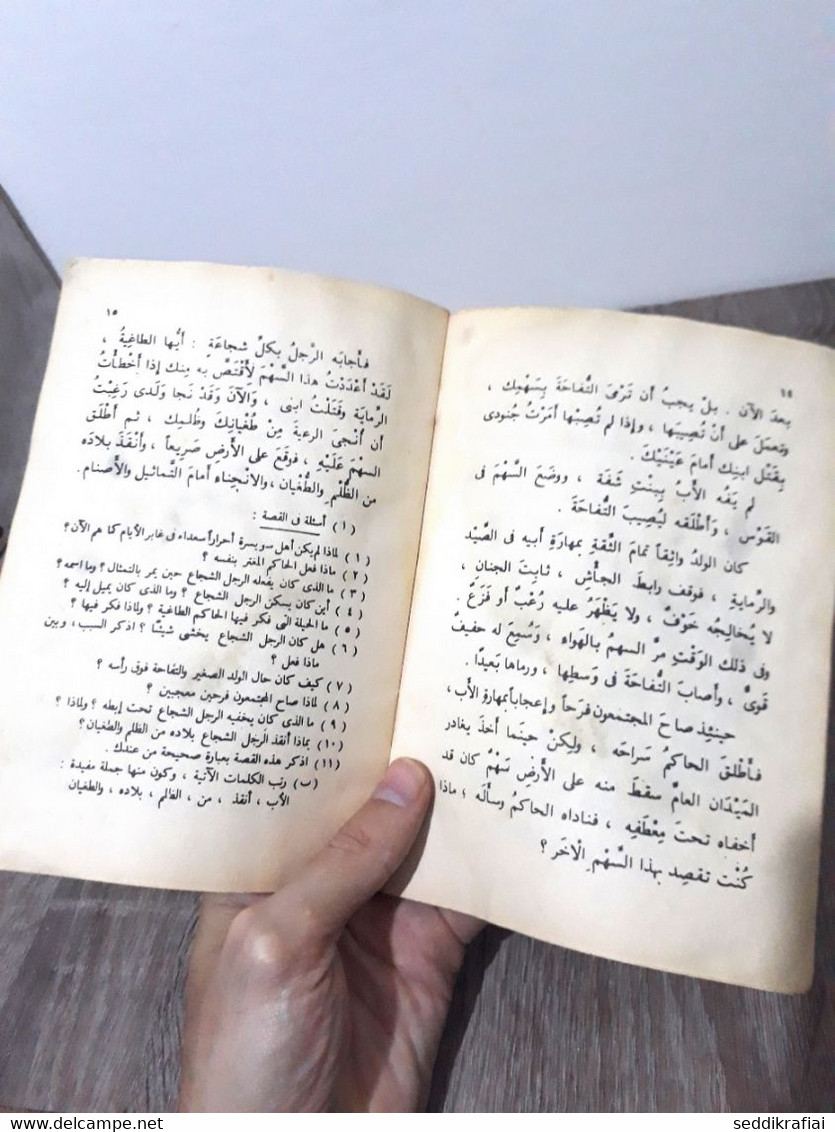 ١٤
بعدَ الآن . بلْ يجبُ أن تَرْمِىَ التُّفاحَةَ بِسَهْمِك ،
وتعمَلَ على أنْ تُصِيبَها ، وإذا لم تُصِبْها أمَرْتُ جُنودى
بِقَتْلِ ابنِك أمامَ عَيْنَيْكَ .
لم يَفُه الأَبُ بِبِنْتِ شَفَة ، ووضَعَ السَّهْمَ فى
القَوْس ، وَأَطْلَقه لِيُصِيبَ التُّفاحَةَ .
كان الولدُ واثِقاً تمامَ الثِّقةِ بِمهارَةِ أبيه فى الصَّيْدِ
والرِّمايةِ ، فوقف رابِطَ الجأْشِ ، ثابِتَ الجنان ،
لا يُخالِجُه خَوْفٌ ، ولا يَظْهَرُ عليه رُعْبٌ أو فَزَعٌ .
وفى ذلك الوَقْتِ مرَّ السهمُ بِالهَواءِ ، وَسُمِعَ له حفيفٌ
قَوِىٌّ ، وأصابَ التُّفاحَةَ فى وَسطِها ، ورماها بَعيداً .
حينئِذٍ صاحَ المجتمعون فَرَحاً وإعجاباً بمهارةِ الأَب ،
فأَطْلَقَ الحاكمُ سَراحَه ، ولكِنْ حينَما أخذَ يغادر
المَيْدَان العامَّ سقطَ منه على الأَرضِ سَهْمٌ كان قد
أخفاه تحتَ مِعْطَفِهِ ، فناداه الحاكم وسأَله ؛ ماذا
كُنْتَ تقصِد بِهذا السَّهْمِ الآخَر ؟
١٥
فأجابَه الرَّجلُ بِكلِّ شجاعَةٍ : أيُّها الطاغِيةُ ،
لَقَدْ أعْدَدْتُ هذا السَّهْمَ لِأَقْتَصَّ به مِنك إذا أخْطَأْتُ
الرِّمايةَ وقَتَلْتُ ابنى ، وَالآنَ وَقَدْ نَجا وَلَدى رَغِبْتُ
أن أُنْجِىَ الرعيةَ مِنْ طُغْيانِكَ وظُلمِك ، ثم أطْلَق
السهْمَ عَلَيْهِ ، فوقَعَ على الأَرضِ صَرِيعاً ، وأنْقَذَ بلادَه
من الظُّلْمِ والطُّغْيان ، والانْحِناء أمامَ التَّماثيل والأصنام .
( ا ) أسئلة فى القصة :
( ١ ) لماذا لم يكن أهل سويسرة أحراراً سعداء فى غابر الأيام كما هم الآن ؟
( ٢ ) ماذا فعل الحاكم المغتر بنفسه ؟
( ٣ ) ما الذى كان يفعله الرجل الشجاع حين يمر بالتمثال ؟ وما اسمه ؟
( ٤ ) أين كان يسكن الرجل الشجاع ؟ وما الذى كان يميل إليه ؟
( ٥ ) ما الحيلة التى فكر فيها الحاكم الطاغية ؟ ولماذا فكر فيها ؟
( ٦ ) هل كان الرجل الشجاع يخشى شيئاً ؟ اذكر السبب ، وبين
ماذا فعل ؟
( ٧ ) كيف كان حال الولد الصغير والتفاحة فوق رأسه ؟
( ٨ ) لماذا صاح المجتمعون فرحين معجبين ؟
( ٩ ) ما الذى كان يخفيه الرجل الشجاع تحت إبطه ؟ ولماذا ؟
(١٠) بماذا أنقذ الرجل الشجاع بلاده من الظلم والطغيان ؟
(١١) اذكر هذه القصة بعبارة صحيحة من عندك .
( ب ) رتب الكلمات الآتية ، وكون منها جملة مفيدة :
الأب ، أنقذ ، من ، الظالم ، بلاده ، والطغيان
www.delcampe.net
seddikrafiai